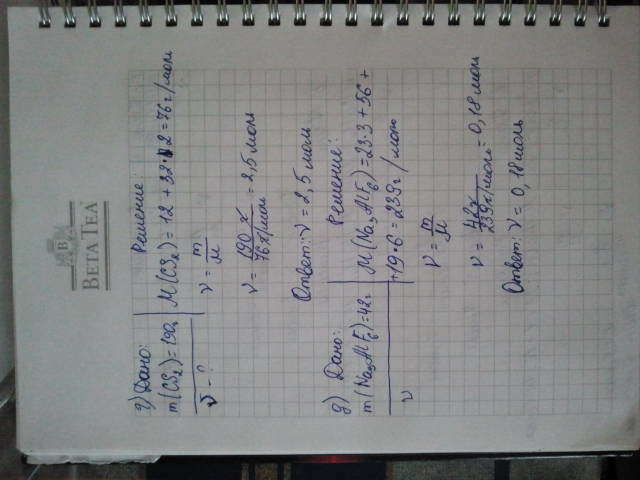 B
BETA TEA
г) Дано:
m(CS₂)=190г
ν-?
Решение:
M(CS₂)=12+32·2=76г/моль
ν=m/M
ν=190г/76г/моль=2,5моль
Ответ: ν=2,5моль
д) Дано:
m(Na₃AlF₆)=42г
ν
Решение:
M(Na₃AlF₆)=23·3+56+
+19·6=239г/моль
ν=m/M
ν=42г/239г/моль=0,18моль
Ответ: ν=0,18моль